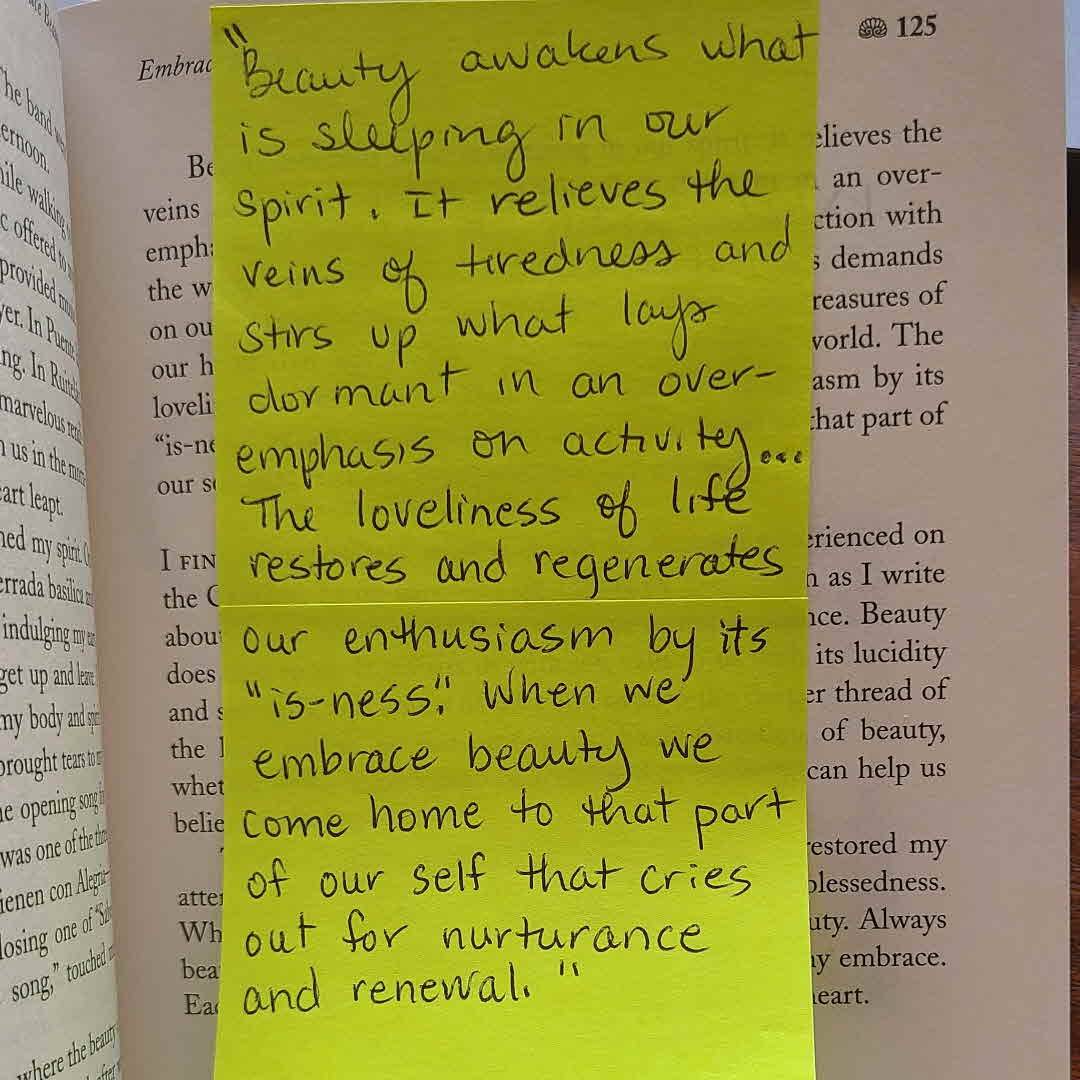 he Be
The band we
ernoon.
hile walking
c offered to
provided mu
yer. In Puente
ng. In Ruitel
marvelous
n us in the
eart leapt.
ned my spirit.
errada basilica
indulging my
get up and leave
my body and spi
brought tears to
he opening song
was one of the
ienen con Alegrí
losing one of "Sal
song," touched
where the beauty
after
Embrac
125
Be
elieves the
an over-
veins
ction with
emph
s demands
the w
reasures of
on ou
world. The
our h
asm by its
loveli
that part of
"is-ne
our s
I FIN
erienced on
the C
n as I write
abou
nce. Beauty
does
its lucidity
and s
er thread of
the l
of beauty,
whet
can help us
belie
estored my
atte
blessedness.
Wh
uty. Always
bea
y embrace.
Eac
heart.
"Beauty awakens what
is sleeping in our
spirit. It relieves the
veins of tiredness and
stirs up what lays
dormant in an over-
emphasis on activity...
The loveliness of life
restores and regenerates
our enthusiasm by its
"is-ness". When we
embrace beauty we
come home to that part
of our self that cries
out for nurturance
and renewal."